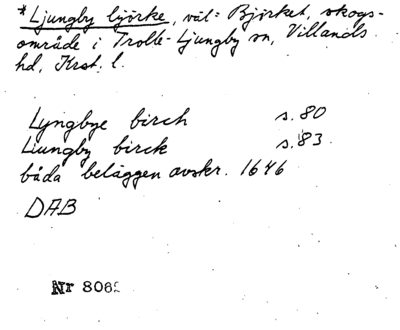 *Ljungby björke, väl = Björket, skogs-
område i Trolle-Ljungby sn, Villands
hd, Krst. l.
Lyngbye birch s. 80
Liungby birck s. 83
båda beläggen avskr. 1646
DAB
Nr 806